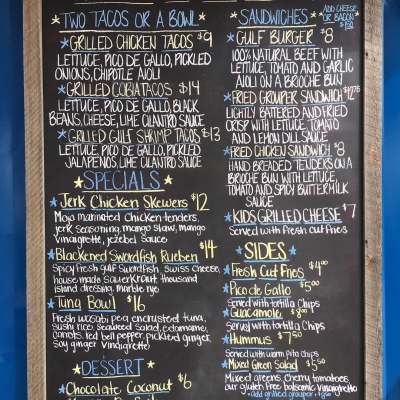 TWO TACOS OR A BOWL
GRILLED CHICKEN TACOS $9
LETTUCE, PICO DE GALLO, PICKLED
ONIONS, CHIPOTLE AIOLI
GRILLED COBIA TACOS $14
LETTUCE, PICO DE GALLO, BLACK
BEANS, CHEESE, LIME CILANTRO SAUCE
GRILLED GULF SHRIMP TACOS $13
LETTUCE, PICO DE GALLO, PICKLED
JALAPENOS, LIME CILANTRO SAUCE
SPECIALS
Jerk Chicken Skewers $12
Mojo marinated chicken tenders,
jerk seasoning, mango slaw, mango
vinaigrette, jezebel sauce
Blackened Swordfish Rueben $14
Spicy fresh gulf swordfish, swiss cheese,
house made sauerkraut, thousand
island dressing, marble rye
Tuna Bowl $16
Fresh wasabi pea encrusted tuna,
sushi rice, seaweed salad, edamame,
carrots, red bell pepper, pickled ginger,
soy ginger vinaigrette
DESSERT
Chocolate Coconut $6
SANDWICHES
ADD CHEESE
OR BACON
$1.50
GULF BURGER $8
100% NATURAL BEEF WITH
LETTUCE, TOMATO AND GARLIC
AIOLI ON A BRIOCHE BUN
FRIED GROUPER SANDWICH
LIGHTLY BATTERED AND FRIED
CRISP WITH LETTUCE, TOMATO
AND LEMON DILL SAUCE
FRIED CHICKEN SANDWICH $8
HAND BREADED TENDERS ON A
BRIOCHE BUN WITH LETTUCE,
TOMATO AND SPICY BUTTERMILK
SAUCE
KIDS GRILLED CHEESE $7
Served with fresh cut fries
SIDES
Fresh Cut Fries $4.00
Pico de Gallo $5.00
Served with tortilla chips
Guacamole $8.00
Served with tortilla chips
Hummus $7.50
Served with warm pita chips
Mixed Green Salad $5.50
Mixed greens, cherry tomatoes,
our gluten free balsamic vinaigrette
add grilled grouper